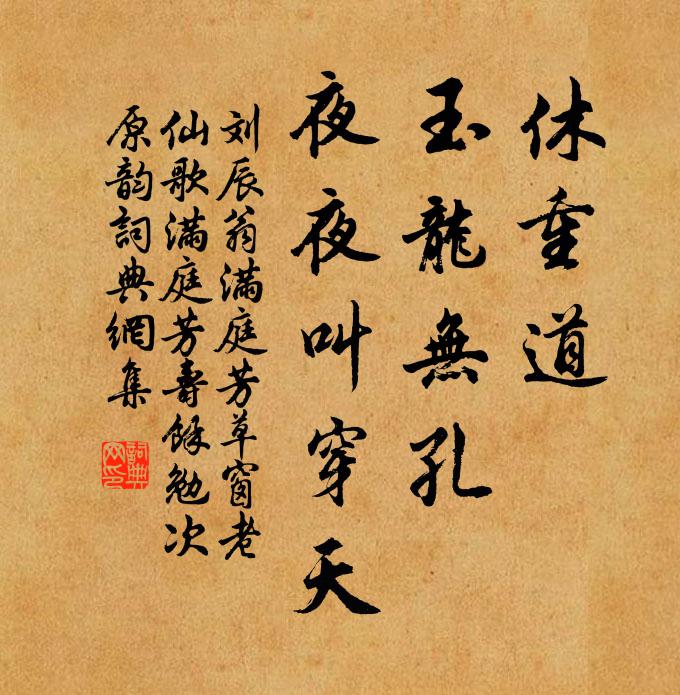 休重道
玉龍無孔
夜夜叫穿天
刘辰翁满庭芳草窗老
仙歌满庭芳寿餘勉次
原韵詞典網集
詞典
网印